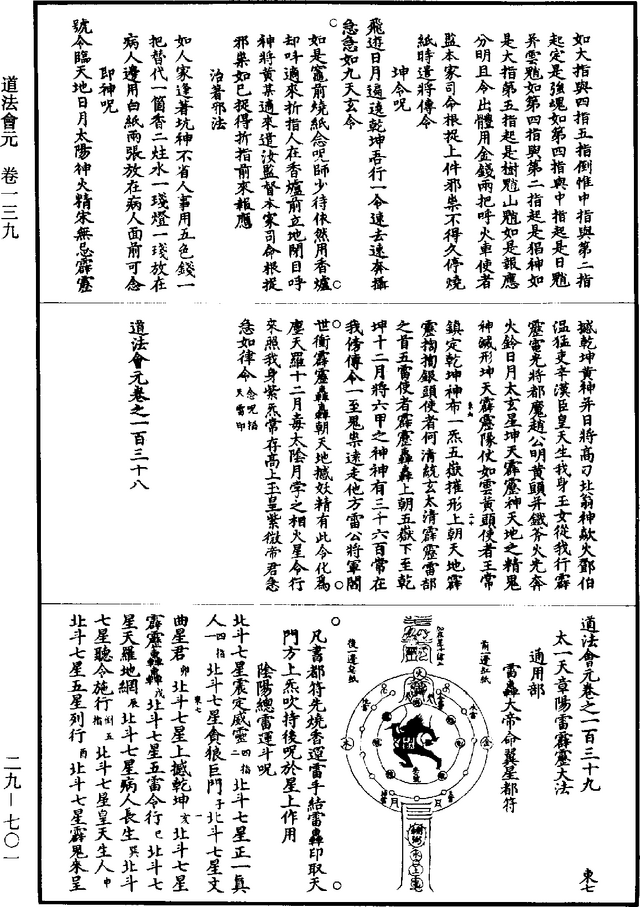 道法會元　卷一三九
如大指與四指五指倒惟中指與第二指
起定是強魂如第四指與中指起是日魁
并雲魁如第四指與第二指起是猖神如
是大指第五指起是樹魁山魁如是報應
分明且令出體用金錢兩把呼火車使者
監本家司命根捉上件邪祟不得久停燒
紙時達將傳令
坤令呪
飛遊日月遏遶乾坤吾行一令速去速奔攝
急急如九天玄令
如是竈前燒紙念呪師少待依然用香爐
却呼適來折指人在香爐前立地閉目呼
神將黄某適來道汝監督本家司命根捉
邪祟如已捉得折指前來報應
治著邪法
如人家逢著坑神不省人事用五色錢一
把替代一箇香二炷水一琖燈一琖放在
病人邊用白紙兩張放在病人面前可念
即神呪
號令臨天地日月太陽神火精宋無忌霹靂
撼乾坤黄神并日將高刁北翁神歘火鄧伯
温猛吏辛漢臣皇天生我身玉女從我行霹
靂電光將都魔趙公明黄頭并鐵斧火光奔
火鈴日月太玄星坤天霹靂神天地之精鬼
神碱形坤天霹靂隊仗如雲黄頭使者王常
鎮定乾坤神布一炁五嶽摧形上朝天地霹
靂掏掏銀頭使者何清統玄太清霹靂雷部
之首五雷使者霹靂轟轟上朝五嶽下至乾
坤十二月將六甲之神神有三千六百常在
我傍傳令一至鬼祟速走他方雷公將軍閻
世衡霹靂轟轟朝天地撼妖精有此令化為
塵天羅十二月毒太陰月孛之相火星令行
來照我身紫炁常存高上玉皇紫微帝君急
急如律令 念呪掐天雷印
道法會元卷之一百三十八
道法會元卷之一百三十九　東七
太一天章陽雷霹靂大法
通用部
雷轟大帝命巽星都符
前一邊紅紙
後一邊皂紙
凡書都符先燒香運雷手結雷轟印取天
門方上炁吹持後呪於星上作用
陰陽總雷運斗呪
北斗七星震定威靈 二四指 北斗七星正一真
人 一四指 北斗七星貪狼巨門 子 北斗七星文
曲星君 卯 北斗七星上撼乾坤 亥 北斗七星
霹靂轟轟 戌 北斗七星五雷令行 巳 北斗七
星天羅地網 辰 北斗七星病人長生 巽 北斗
七星聽令施行 剔五指 北斗七星皇天生人 申
北斗七星五星列行 酉 北斗七星霹鬼來呈
二九—七〇一